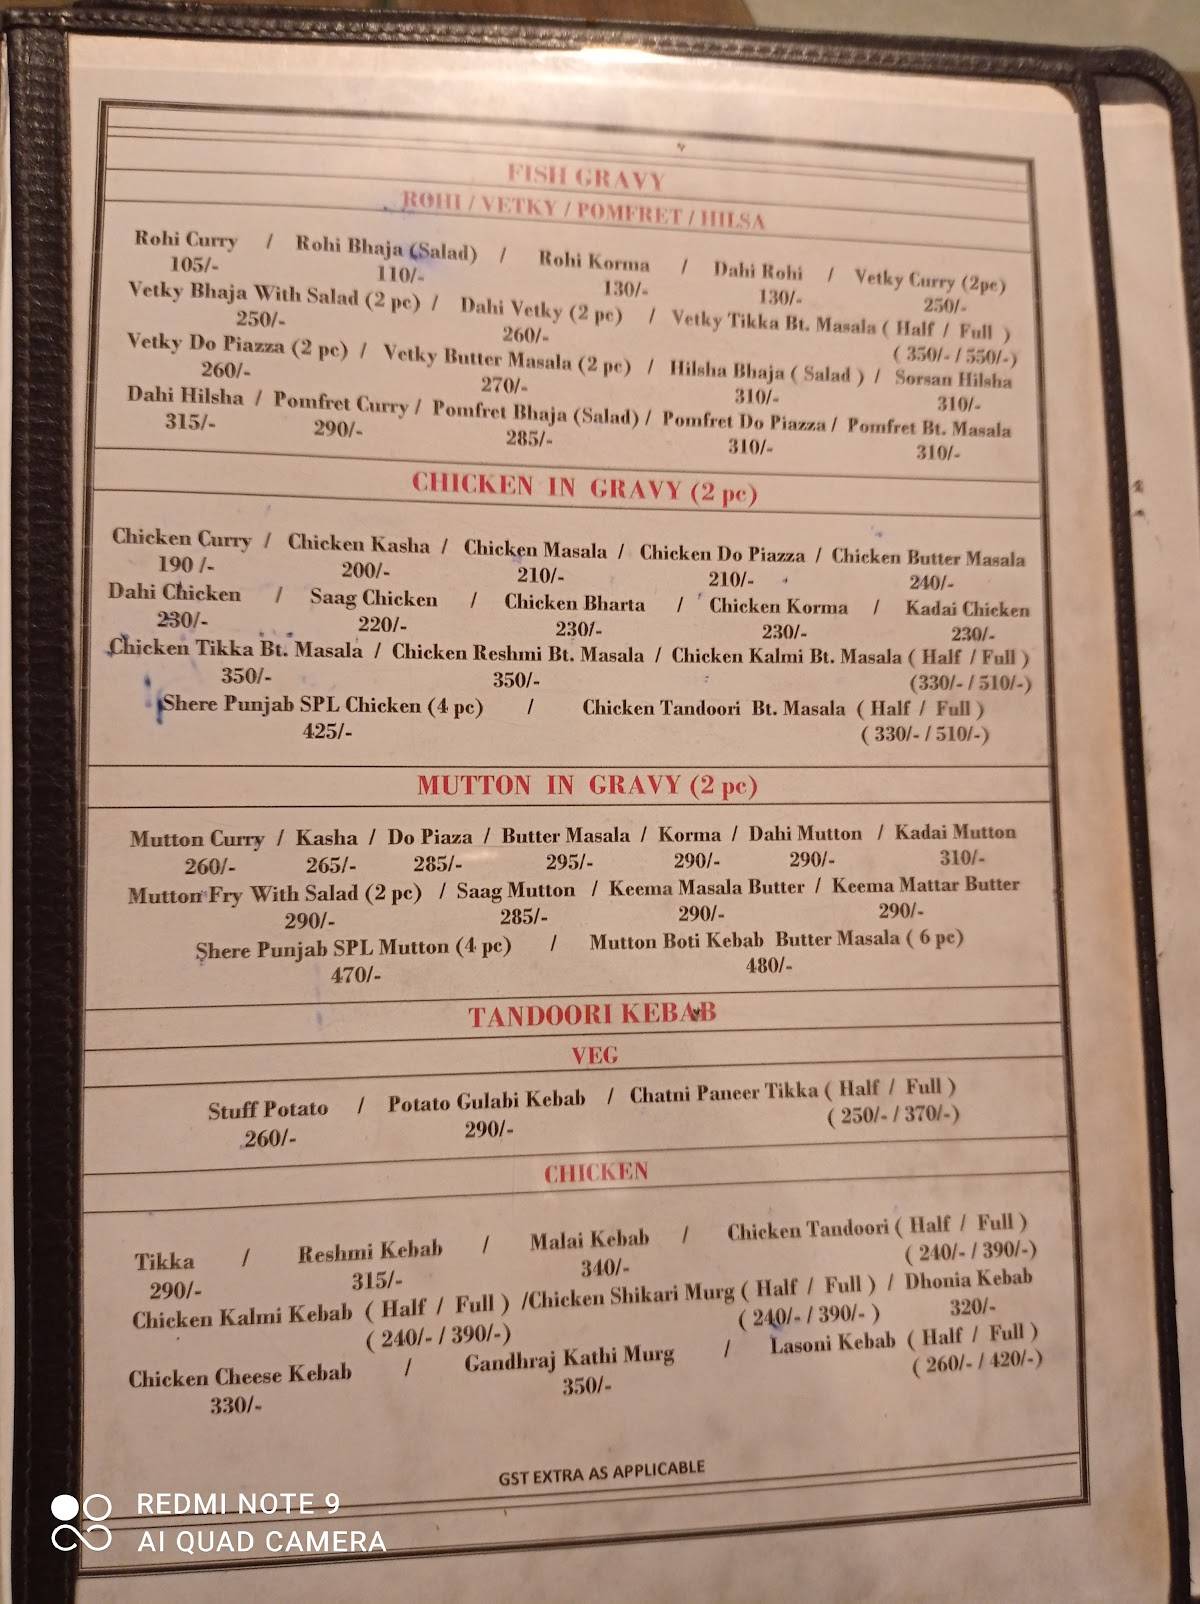 FISH GRAVY
ROHI / VETKY / POMFRET / HILSA
Rohi Curry / Rohi Bhaja (Salad) / Rohi Korma / Dahi Rohi / Vetky Curry (2pc)
105/- 110/- 130/- 130/- 250/-
Vetky Bhaja With Salad (2 pc) / Dahi Vetky (2 pc) / Vetky Tikka Bt. Masala ( Half / Full )
250/- 260/- ( 350/- / 550/-)
Vetky Do Piazza (2 pc) / Vetky Butter Masala (2 pc) / Hilsha Bhaja ( Salad ) / Sorsan Hilsha
260/- 270/- 310/- 310/-
Dahi Hilsha / Pomfret Curry / Pomfret Bhaja (Salad) / Pomfret Do Piazza / Pomfret Bt. Masala
315/- 290/- 285/- 310/- 310/-
CHICKEN IN GRAVY (2 pc)
Chicken Curry / Chicken Kasha / Chicken Masala / Chicken Do Piazza / Chicken Butter Masala
190 /- 200/- 210/- 210/- 240/-
Dahi Chicken / Saag Chicken / Chicken Bharta / Chicken Korma / Kadai Chicken
230/- 220/- 230/- 230/- 230/-
Chicken Tikka Bt. Masala / Chicken Reshmi Bt. Masala / Chicken Kalmi Bt. Masala ( Half / Full )
350/- 350/- (330/- / 510/-)
Shere Punjab SPL Chicken (4 pc) / Chicken Tandoori Bt. Masala ( Half / Full )
425/- ( 330/- / 510/-)
MUTTON IN GRAVY (2 pc)
Mutton Curry / Kasha / Do Piaza / Butter Masala / Korma / Dahi Mutton / Kadai Mutton
260/- 265/- 285/- 295/- 290/- 290/- 310/-
Mutton Fry With Salad (2 pc) / Saag Mutton / Keema Masala Butter / Keema Mattar Butter
290/- 285/- 290/- 290/-
Shere Punjab SPL Mutton (4 pc) / Mutton Boti Kebab Butter Masala ( 6 pc)
470/- 480/-
TANDOORI KEBAB
VEG
Stuff Potato / Potato Gulabi Kebab / Chatni Paneer Tikka ( Half / Full )
260/- 290/- ( 250/- / 370/-)
CHICKEN
Tikka / Reshmi Kebab / Malai Kebab / Chicken Tandoori ( Half / Full )
290/- 315/- 340/- ( 240/- / 390/-)
Chicken Kalmi Kebab ( Half / Full ) /Chicken Shikari Murg ( Half / Full ) / Dhonia Kebab
( 240/- / 390/-) ( 240/- / 390/- ) 320/-
Chicken Cheese Kebab / Gandhraj Kathi Murg / Lasoni Kebab ( Half / Full )
330/- 350/- ( 260/- / 420/-)
GST EXTRA AS APPLICABLE
REDMI NOTE 9
AI QUAD CAMERA